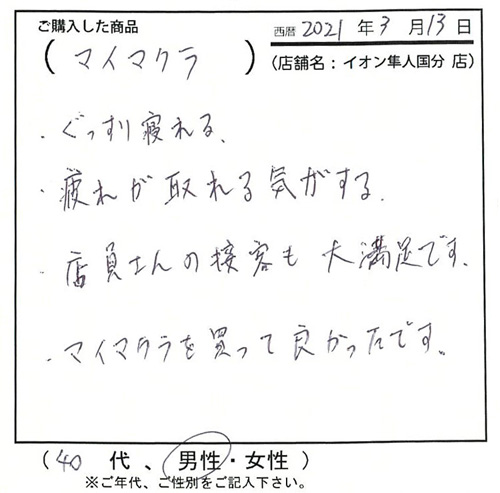 ご購入した商品
西暦 2021 年 3 月 13 日
( マイマクラ )
(店舗名：イオン隼人国分 店)
・ぐっすり寝れる。
・疲れが取れる気がする。
・店員さんの接客も大満足です。
・マイマクラを買って良かったです。
( 40 代 、 男性・女性 )
※ご年代、ご性別をご記入下さい。